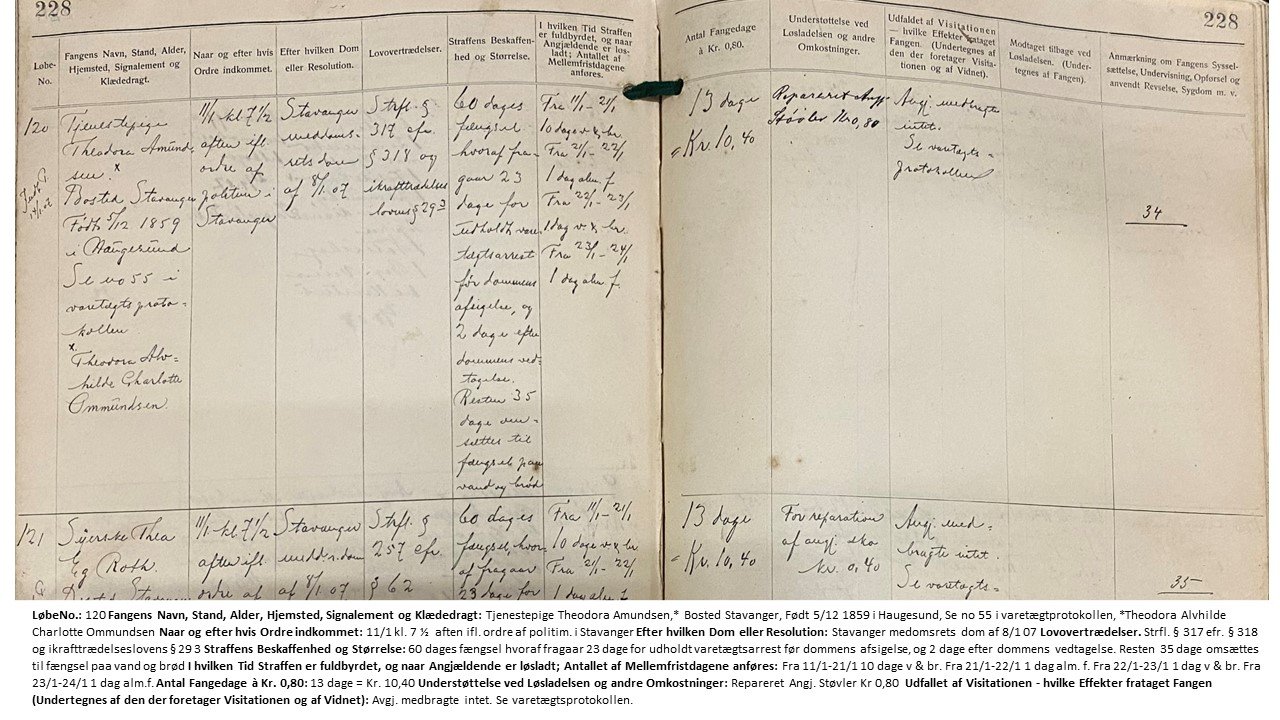 228
228
Løbe-
No.
Fangens Navn, Stand, Alder,
Hjemsted, Signalement og
Klædedragt.
Naar og efter hvis
Ordre indkommet.
Efter hvilken Dom
eller Resolution.
Lovovertrædelser.
Straffens Beskaffen-
hed og Størrelse.
I hvilken Tid Straffen
er fuldbyrdet, og naar
Angjældende er løs-
ladt; Antallet af
Mellemfristdagene
anføres.
Antal Fangedage
à Kr. 0,80.
Understøttelse ved
Løsladelsen og andre
Omkostninger.
Udfaldet af Visitationen
— hvilke Effekter frataget
Fangen. (Undertegnes af
den der foretager Visita-
tionen og af Vidnet).
Modtaget tilbage ved
Løsladelsen. (Under-
tegnes af Fangen).
Anmærkning om Fangens Syssel-
sættelse, Undervisning, Opførsel og
anvendt Revselse, Sygdom m. v.
120
Tjenestepige
Theodora Amund-
sen. x
Bosted Stavanger
Født 5/12 1859
i Haugesund
Se no 55 i
varetægtsproto-
kollen
x
Theodora Alv-
hilde Charlotte
Ommundsen.
11/1 kl. 7 1/2
aften ifl.
ordre af
politim i
Stavanger
Stavanger
meddoms-
rets dom
af 8/1 07
Strfl. §
317 efr.
§ 318 og
ikrafttrædelses
lovens § 29 3
60 dages
fængsel
hvoraf fra-
gaar 23
dage for
udholdt vare-
tægtsarrest
før dommens
afsigelse, og
2 dage efter
dommens ved-
tagelse.
Resten 35
dage om-
sættes til
fængsel paa
vand og brød
Fra 11/1 - 21/1
10 dage v & br.
Fra 21/1 - 22/1
1 dag alm. f.
Fra 22/1 - 23/1
1 dag v & br.
Fra 23/1 - 24/1
1 dag alm. f.
13 dage
= Kr. 10,40
Repareret Angj.
Støvler Kr 0,80
Angj. medbragte
intet.
Se varetægts-
protokollen
34
121
Syerske Thea
Eg Roth.
Bosted Stavanger
11/1 kl 7 1/2
aften ifl.
ordre af
Stavanger
medd.r. dom
af 8/1 07
Strfl. §
257 efr.
§ 62
60 dages
fængsel, hvor-
af fragaar
23 dage for
Fra 11/1 - 21/1
10 dage v & br
Fra 21/1 - 22/1
1 dag alm f
13 dage
= Kr. 10,40
For reparation
af angj. sko
kr. 0,40
Angj. med-
bragte intet.
Se varetægts-
35
LøbeNo.: 120 Fangens Navn, Stand, Alder, Hjemsted, Signalement og Klædedragt: Tjenestepige Theodora Amundsen,* Bosted Stavanger, Født 5/12 1859 i Haugesund, Se no 55 i varetægtprotokollen, *Theodora Alvhilde
Charlotte Ommundsen Naar og efter hvis Ordre indkommet: 11/1 kl. 7 ½ aften ifl. ordre af politim. i Stavanger Efter hvilken Dom eller Resolution: Stavanger medomsrets dom af 8/1 07 Lovovertrædelser. Strfl. § 317 efr. § 318
og ikrafttrædelseslovens § 29 3 Straffens Beskaffenhed og Størrelse: 60 dages fængsel hvoraf fragaar 23 dage for udholdt varetægtsarrest før dommens afsigelse, og 2 dage efter dommens vedtagelse. Resten 35 dage omsættes
til fængsel paa vand og brød I hvilken Tid Straffen er fuldbyrdet, og naar Angjældende er løsladt; Antallet af Mellemfristdagene anføres: Fra 11/1-21/1 10 dage v & br. Fra 21/1-22/1 1 dag alm. f. Fra 22/1-23/1 1 dag v & br. Fra
23/1-24/1 1 dag alm.f. Antal Fangedage à Kr. 0,80: 13 dage = Kr. 10,40 Understøttelse ved Løsladelsen og andre Omkostninger: Repareret Angj. Støvler Kr 0,80 Udfallet af Visitationen - hvilke Effekter frataget Fangen
(Undertegnes af den der foretager Visitationen og af Vidnet): Avgj. medbragte intet. Se varetægtsprotokollen.